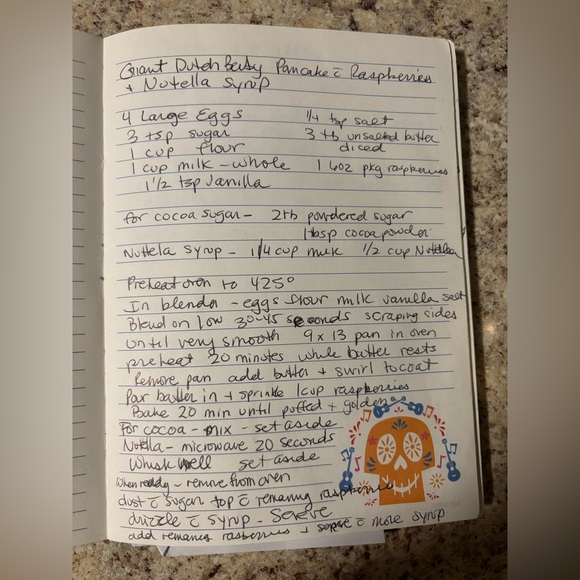 Giant Dutch baby Pancake c̄ Raspberries
+ Nutella Syrup
4 Large Eggs 1/4 tsp salt
3 tsp sugar 3 tb unsalted butter
1 cup flour diced
1 cup milk - whole 1 6oz pkg raspberries
1 1/2 tsp Vanilla
for cocoa sugar - 2tb powdered sugar
1 tbsp cocoa powder
Nuttela syrup - 1/4 cup milk 1/2 cup Nutella
Preheat oven to 425°
In blender - eggs flour milk vanilla salt
Blend on low 30-45 seconds scraping sides
until very smooth 9 x 13 pan in oven
preheat 20 minutes while batter rests
Remove pan add butter + swirl to coat
Por batter in + sprinkle 1cup raspberries
Bake 20 min until puffed + golden
For cocoa - mix - set aside
Nutella - microwave 20 seconds
Whisk well set aside
When ready - remove from oven
dust c̄ sugar top c̄ remaining raspberries
drizzle c̄ syrup - Serve
add remaining raspberries + serve c̄ more syrup